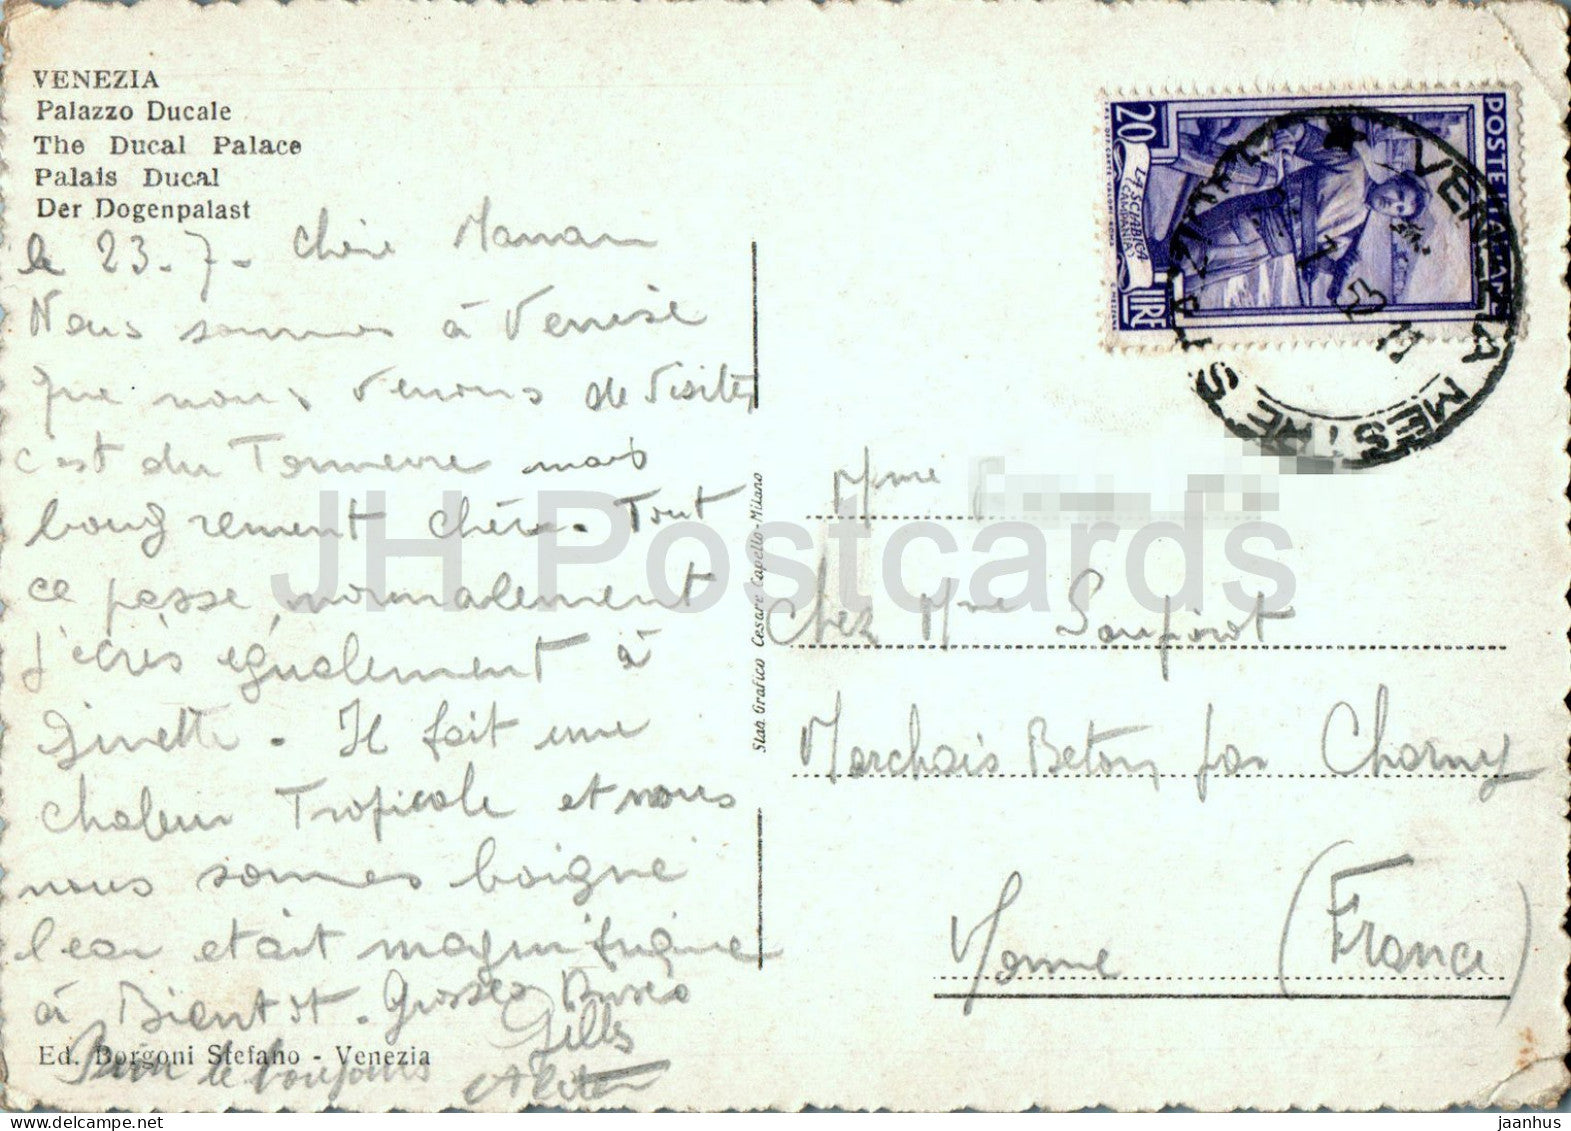 VENEZIA
Palazzo Ducale
The Ducal Palace
Palais Ducal
Der Dogenpalast
le 23-7- Chère Maman
Nous sommes à Venise
que nous venons de visiter
c'est du Tonnerre mais
bougrement chère. Tout
ce passe normalement
J'écris également à
Ginette. Il fait une
chaleur Tropicale et nous
nous sommes baigné
l'eau etait magnifique
à Bientot. Grosses Bises
Gills
Ed. Borgoni Stefano - Venezia
Bien le boujours
Stab. Grafico Cesare Capello - Milano
POSTE ITALIANE
20
LIRE
LA SCIABICA
(CAMPANIA)
VENEZIA MESTRE
Mme
Chez Mme
Marchais Beton par Charny
Yonne (France)
JH Postcards
www.delcampe.net
jaanhus